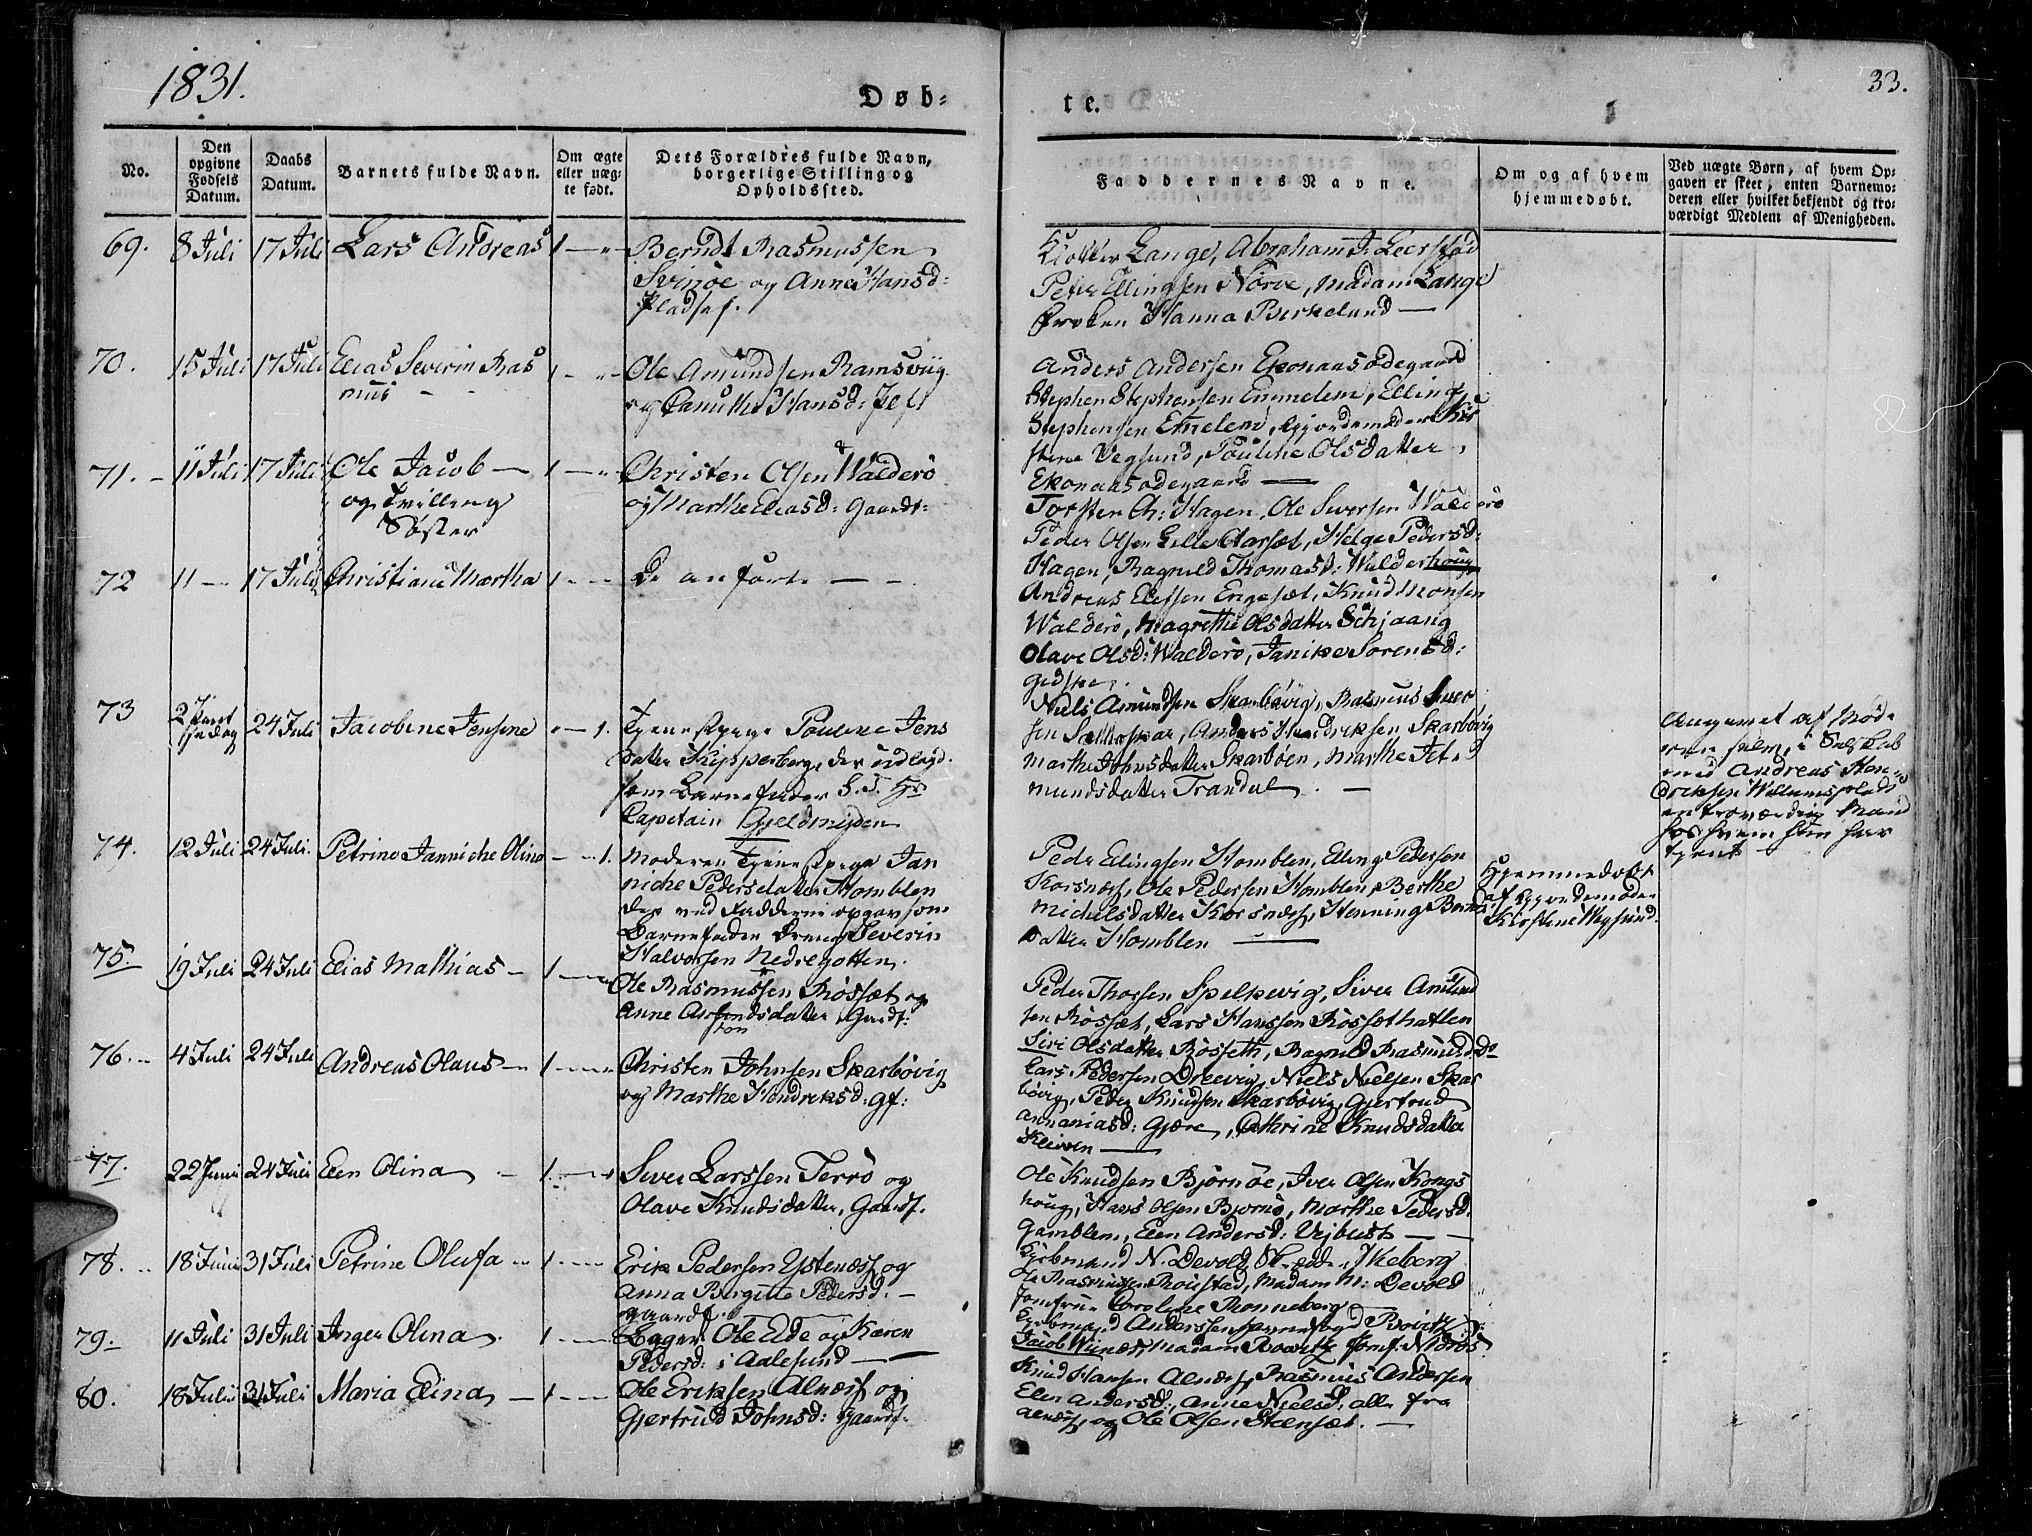 1831.
Døb-
te.
33.
No.
Den opgivne Fødsels Datum.
Daabs Datum.
Barnets fulde Navn.
Om ægte eller uæg-te født.
Dets Forældres fulde Navn, borgerlige Stilling og Opholdssted.
Faddernes Navne.
Om og af hvem hjemmedøbt.
Ved uægte Børn, af hvem Op-gaven er skeet, enten Barnemo-deren eller hvilket bekjendt og tro-værdigt Medlem af Menigheden.
69. 8 Juli 17 Juli Lars Andreas 1 — "
Berndt Rasmussen
Svinøe og Anne Hansd:
Pladsf.
Lange, Abraham
Peter Ellingsen Nörve, Madam Lange
Hanna Birkelund —
70. 15 Juli 17 Juli Elias Severin Ras
mus - -
1 - "
Ole Amundsen Ramsviig
og Hansd:
Anders Andersen Ekonaasødegaard
Stephen Stephensen Emmelem, Elling
Stephensen Emelem, Gjordemoder Kir
stine Vegsund, Olsdatter,
Ekonaasødegaard —
71. - 11 Juli 17 Juli Ole Jacob —
og Tvilling
Søster
1 — "
Christen Olsen Walderö
og Marthe Eliasd: Gaardf:
Torsten Ch: Hagen, Ole Siversen Walderö
Peder Olsen Lille Aarset, Helge Pedersd:
Hagen, Ragnild Thomasd: Walderhoug
72 11 — 17 Juli Christiane Martha 1 - -
De anførte — -
Andreas Engeset, Knud Monsen
Walderö, Magrethe Olsdatter Schjaang
Olave Olsd: Walderö, Janike Sorensd:
Gidske.
73
24 Juli Jacobine Jensine " — 1.
Tjenestpige Pouline Jens
datter Kipperberg, der udlagd.
som Barnefader S. T. Hr
Capitain Gjeldmeyden
Niels Amundsen Skarbövig, Rasmus Siver
sen Sætteskar, Anders Hendriksen Skarbövig
Marthe Johnsdatter Skarböen, Marthe
mundsdatter Trandal. -
Angivet af Mod-
eren selv, i Selskab
med Andreas Hen-
driksen Willumsplads
en troværdig Mand
hos hvem hun har
tjent —
74. 12 Juli 24 Juli. Petrine Janniche Olina - - 1.
Moderen Tjenestpige Jan
niche Pedersdatter Homblen
der ved Fadderne opgav som
Barnefader Dreng Severin
Halvorsen Nedregotten.
Peder Ellingsen Homblen, Elling Pedersen
Korsnæs, Ole Pedersen Homblen, Berthe
Michelsdatter Korsnæs, Henning
datter Homblen —
Hjemmedøbt
af Gjordemoder
Kirstine Vegsund.
75. 19 Juli 24 Juli Elias Mathias - 1 — "
Ole Rasmussen Rösset og
Anne datter, Gaardf:
Peder Thorsen Spelkevig, Siver Amund
sen Rösset, Lars Hanssen Rössethatlen
Siri Olsdatter Rösseth, Ragnild Rasmusd do
76. - 4 Juli 24 Juli Andreas Olaus — 1 — "
Christen Johnsen Skarbövig
og Marthe Hendriksd: gf:
Lars Pedersen Drevig, Niels Nielsen Skar
bövig, Peder Knudsen Skarbövig, Gjertrud
Annaniasd: Gjære, Cathrine Knudsdatter
Kleiven —
77. 22 Juni 24 Juli Elen Olina - 1 — "
Siver Larssen Terrö og
Olave Knudsdatter, Gaardf.
Ole Knudsen Bjørnöe, Iver Olsen Kongs
houg, Hans Olsen Bjørnö, Marthe Pedersd.
Gamblem, Elen Andersd: Vejbust — -
78. - 18 Juni 31 Juli Petrine Olufa " 1 — -
Erik Pedersen Ystenæs og
Anna Birgitte Pedersd: -
gaardf.
Kjøbmand N. Devold,
Ole Rasmussen Roustad, Madam M: Devold
Jomfrue Caroline Rønneberg —
79. 11 Juli 31 Juli Inger Olina. 1 — -
Logger Ole Eide og Karen
Pedersd: i Aalesund —
Kjøbmand Anderssen
Jacob Madam Jomf: Nörös.
80. 18 Juli 31 Juli Maria Elina — 1 — -
Ole Eriksen Alnæs og
Gjertrud Johnsd: Gaardf.
Knud Hansen Alnæs, Rasmus Andersen
Elen Andersd:, Anne Nielsd. alle fra
Alnæs, og Ole Olsen Steenset. —